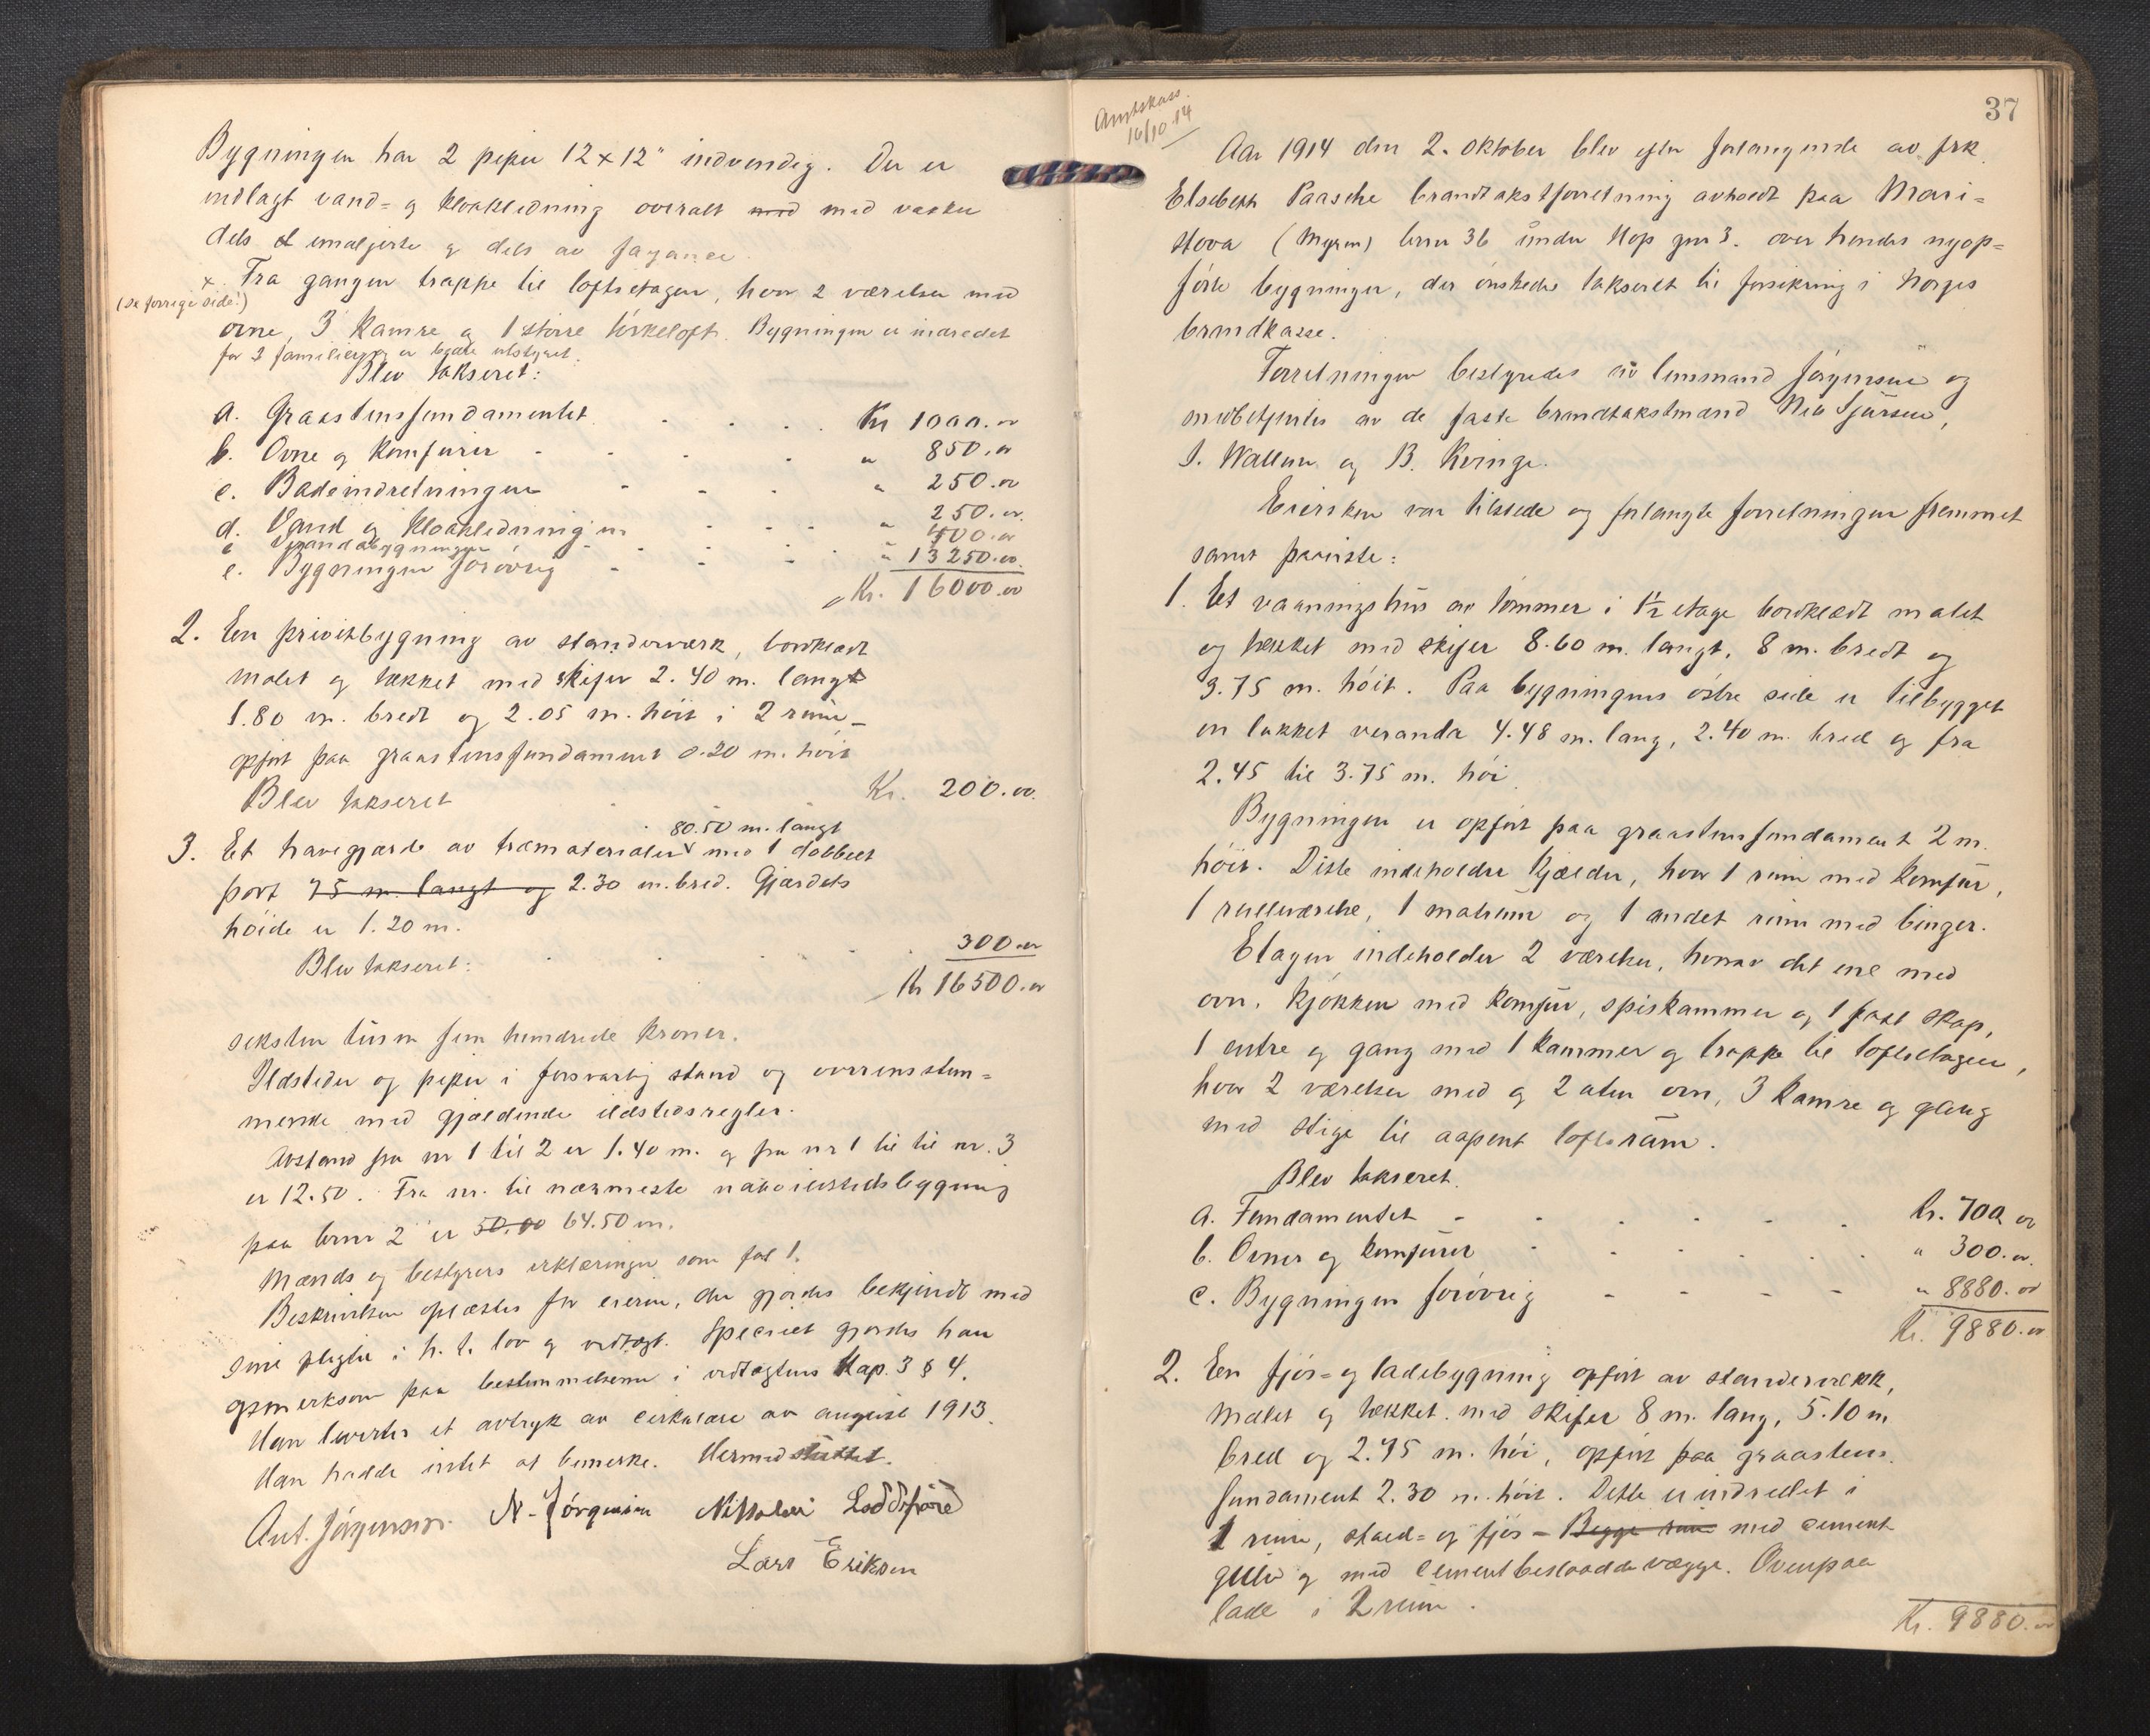 Bygningen har 2 piper 12 x 12" indvendig. Der er
indlagt vand- og kloakledning overalt med vasker
dels emaljerte og dels av fayance.
x Fra gangen trappe til loftsetagen, hvor 2 værelser med
(se forrige side!)
ovne, 3 kamre og 1 större törkeloft. Bygningen er indredet
for 2 familier og er bedre utstyret.
Blev takseret:
a. Graastensfundamentet . . . . Kr 1000.00
b. Ovne og komfurer - - - - " 850.00
c. Badeindretningen - - - " 250.00
d. Vand og kloakledningen - - - " 250.00
e Verandabygningen - - - 400.00
e. Bygningen forövrig - - - " 13250.00
Kr. 16000.00
2. En privitbygning av standerværk, bordklædt
malet og tækket med skifer 2.40 m. langt
1.80 m. bredt og 2.05 m. höit i 2 rum -
opfört paa graastensfundament 0.20 m. höit
Blev takseret . Kr. 200.00.
80.50 m. langt
3. Et havegjærde av træmaterialer med 1 dobbelt
port 75 m. langt og 2.30 m. bred. Gjærdets
höide er 1.20 m.
Blev takseret: . . . . 300.00
Kr 16500.00
seksten tusen fem hundrede kroner.
Ildsteder og piper i forsvarlig stand og overensstem=
mende med gjældende ildstedsregler.
Avstand fra nr 1 til 2 er 1.40 m. og fra nr 1 til til nr. 3
er 12.50. Fra nr. til nærmeste naboildstedsbygning
paa brnr 2 er 50.00 64.50 m.
Mænds og bestyrers erklæringer som fol 1.
Beskrivelsen oplæstes for eieren, der gjordes bekjendt med
sine pligter i h. t. lov og vedtægt. Specielt gjordes han
opmerksom paa bestemmelserne i vedtægtens Kap. 3 § 4.
Han levertes et avtryk av cirkulære av august 1913.
Han hadde intet at bemerke. Hermed sluttet.
Ant. Jörgensen. N. Jörgensen Nikolai Loddefjöre
Lars Eriksen
Amtskass.
16/10 14
37
Aar 1914 den 2. oktober blev efter forlangende av frk.
Elsebeth Paasche brandtakstforretning avholdt paa Mari=
stova (Myren) brnr 36 under Hop gnr 3. over hendes nyop=
förte bygninger, der önskedes takseret til forsikring i Norges
brandkasse.
Forretningen bestyredes av lensmand Jörgensen og
medbetjentes av de faste brandtakstmænd Nils Sjursen,
J. Wallem og B. Kvinge.
Eiersken var tilstede og forlangte forretningen fremmet
samt paaviste:
1. Et vaaningshus av tömmer i 1½ etage bordklædt malet
og tækket med skifer 8.60 m. langt, 8 m. bredt og
3.75 m. höit. Paa bygningens östre side er tilbygget
en lukket veranda 4.48 m. lang, 2.40 m. bred og fra
2.45 til 3.75 m. höi.
Bygningen er opfört paa graastensfundament 2 m.
höit. Dette indeholder kjælder, hvor 1 rum med komfur,
1 rullværelse, 1 matrum og 1 andet rum med binger.
Etagen indeholder 2 værelser, hvorav det ene med
ovn. Kjökken med komfur, spiskammer og 1 fast skap,
1 entre og gang med 1 kammer og trappe til loftsetagen,
hvor 2 værelser med og 2 uten ovn, 3 kamre og gang
med stige til aapent loftsrum.
Blev takseret.
a. Fundamentet - - - - - . Kr. 700 00
b. Ovner og komfurer - . . . . . " 300.00.
c. Bygningen forövrig - - - - " 8880.00
Kr. 9880.00
2. En fjös- og ladebygning opfört av standerværk,
malet og tækket med skifer 8 m. lang, 5.10 m
bred og 2.75 m. höi, opfört paa graastens.
fundament 2.30 m. höit. Dette er indredet i
1 rum, stald- og fjös - Begge rum med cement
gulv og med cementbeslaadde vægge. Ovenpaa
lade i 2 rum.
Kr. 9880.00